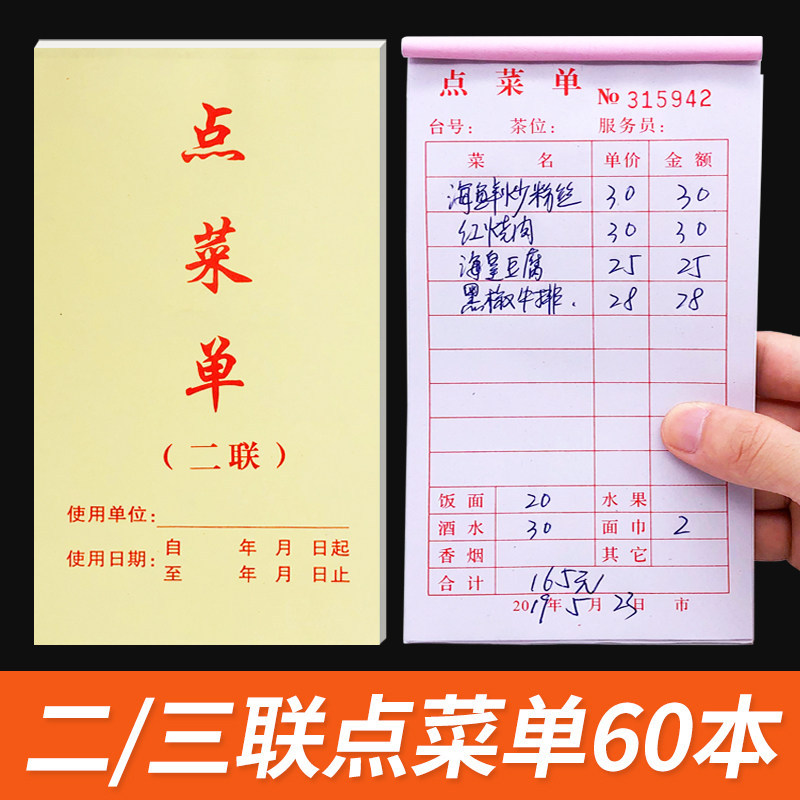 点
菜
单
（二联）
使用单位：
使用日期：
自 年 月 日起
至 年 月 日止
点菜单 № 315942
台号： 茶位： 服务员：
菜 名 单价 金额
海鲜炒粉丝 30 30
红烧肉 30 30
海皇豆腐 25 25
黑椒牛排. 28 28
饭面 20 水果
酒水 30 面巾 2
香烟 其它
合计 165元
2019年5月23日 市
二/三联点菜单60本